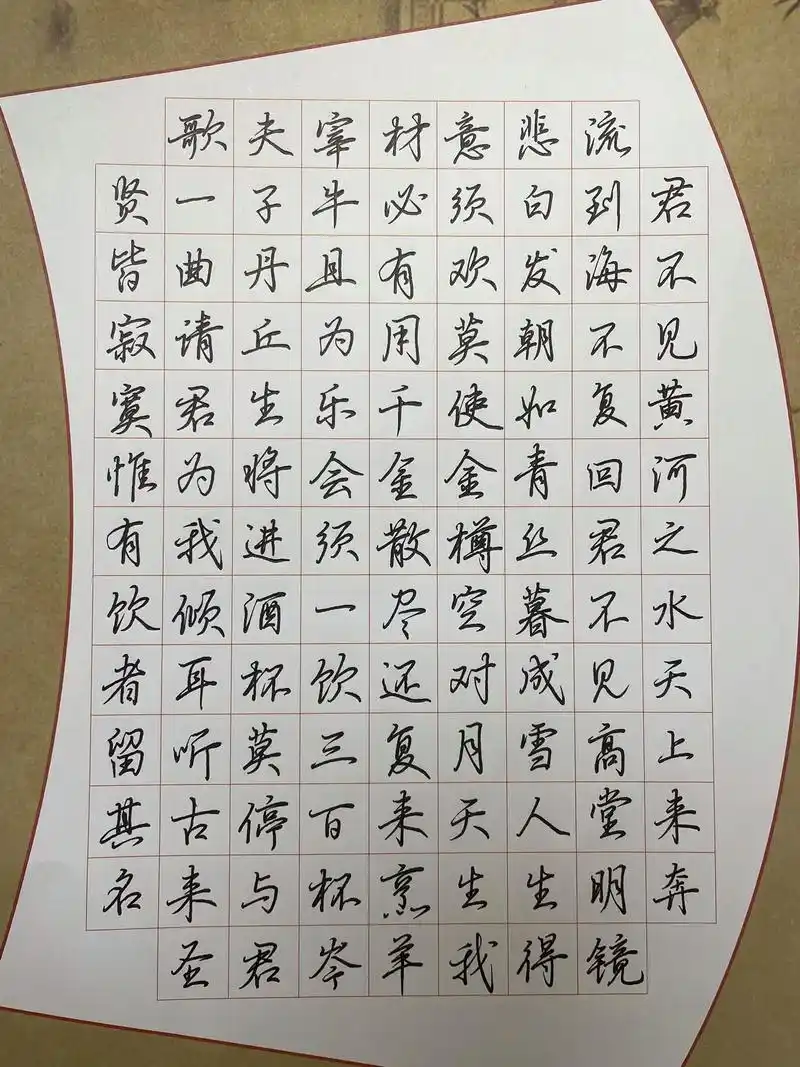 君不见黄河之水天上来奔
流到海不复回君不见高堂明镜
悲白发朝如青丝暮成雪人生得
意须欢莫使金樽空对月天生我
材必有用千金散尽还复来烹羊
宰牛且为乐会须一饮三百杯岑
夫子丹丘生将进酒杯莫停与君
歌一曲请君为我倾耳听古来圣
贤皆寂寞惟有饮者留其名